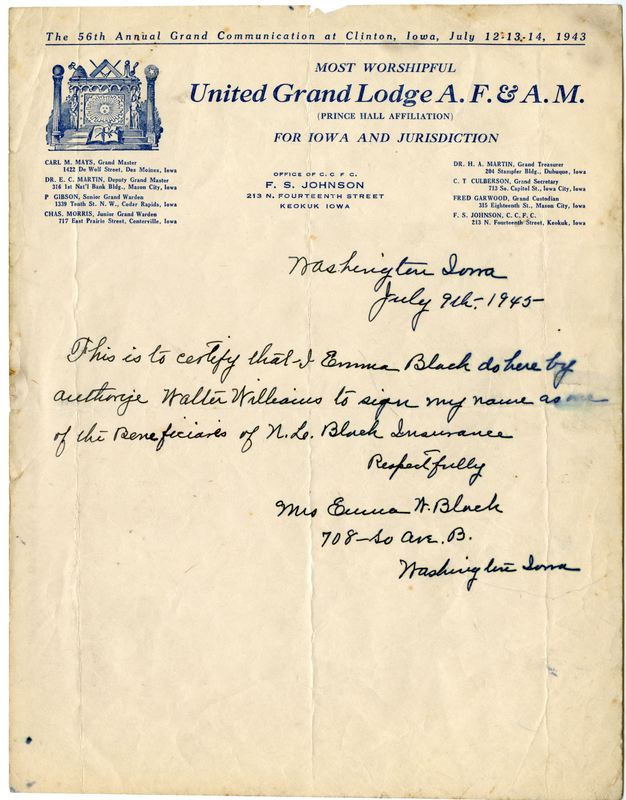 The 56th Annual Grand Communication at Clinton, Iowa, July 12-13-14, 1943
MOST WORSHIPFUL
United Grand Lodge A. F. & A. M.
(PRINCE HALL AFFILIATION)
FOR IOWA AND JURISDICTION
CARL M. MAYS, Grand Master
1422 De Wolf Street, Des Moines, Iowa
DR. E. C. MARTIN, Deputy Grand Master
316 1st Nat'l Bank Bldg., Mason City, Iowa
P GIBSON, Senior Grand Warden
1339 Tenth St. N. W., Cedar Rapids, Iowa
CHAS. MORRIS, Junior Grand Warden
717 East Prairie Street, Centerville, Iowa
OFFICE OF C. C. F. C.
F. S. JOHNSON
213 N. FOURTEENTH STREET
KEOKUK IOWA
DR. H. A. MARTIN, Grand Treasurer
204 Stampfer Bldg., Dubuque, Iowa
C. T CULBERSON, Grand Secretary
713 So. Capitol St., Iowa City, Iowa
FRED GARWOOD, Grand Custodian
315 Eighteenth St., Mason City, Iowa
F. S. JOHNSON, C. C. F. C.
213 N. Fourteenth Street, Keokuk, Iowa
Washington Iowa
July 9th. 1945
This is to certify that I Emma Black do here by
authorize Walter Williams to sign my name as one
of the Beneficiares of N. L. Black Insurance
Respectfully
Mrs Emma W. Black
708-So Ave. B.
Washington Iowa